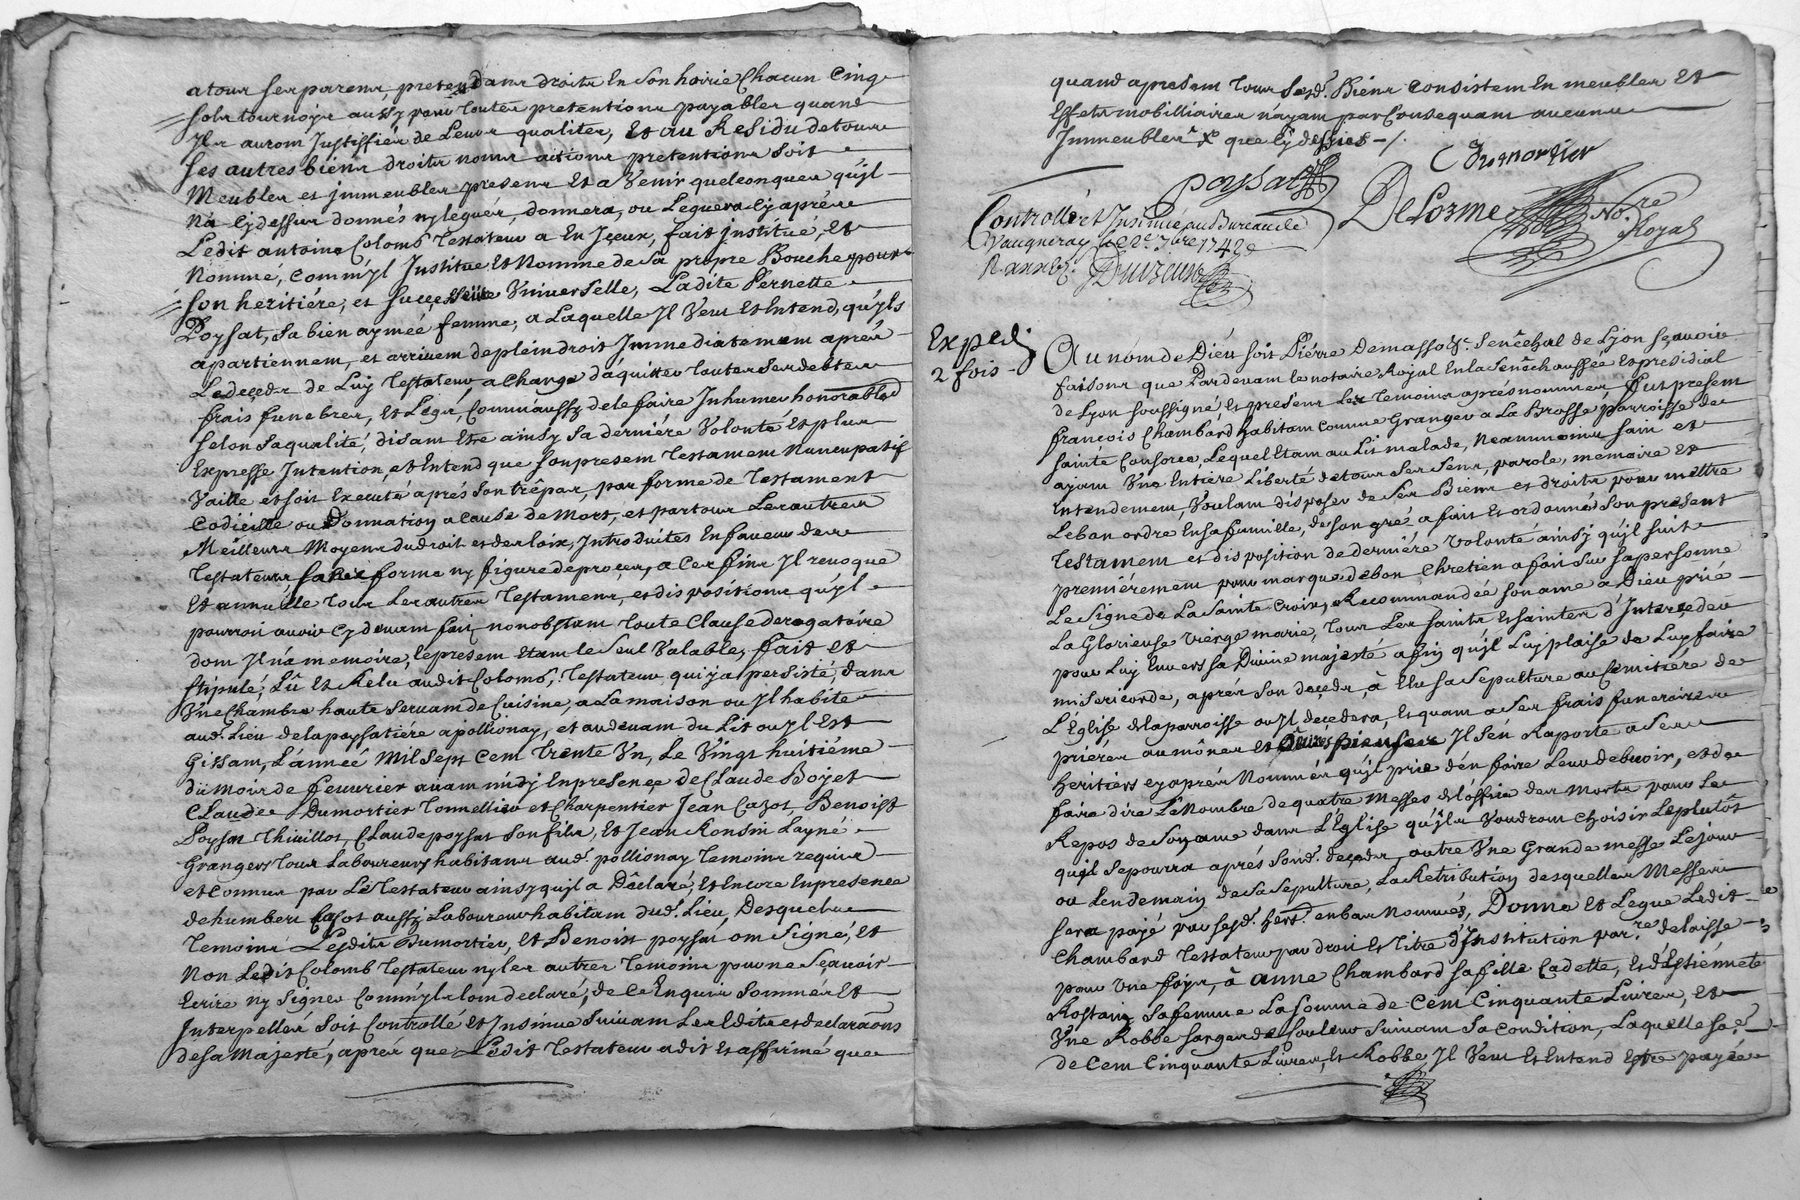 a tous ses parens pretendans droits En Son hoirie Chacun Cinq
sols tournois aussy pour Toutes pretentions payables quand
Ils auront Justiffiés de Leurs qualites, Et au Residu de tous
ses autres biens droits noms actions pretentions soit
Meubles et immeubles presens Et a Venir quelconques qu'jl
Na Cydessus donnés ny legués, donnera, ou Leguera Cy après
Ledit antoine Colomb Testateur a En Jceux, fait institué, Et
Nomme, Comm'jl Institue Et Nomme de Sa propre Bouche pour
son heritiére, et Successeüse Vniverselle, Ladite Pernette
Poysat, Sa bien aymeé femme, a Laquelle Jl Veut Et Entend, qu'jls
apartiennent, et arrivent depleindroit Immediatement après
Le deceds de Luy Testateur, a Charge d'aquitter toutes Ses debtes
frais funebres, Et Legs, Comm'aussy de le faire Inhumer honorablemt
selon Sa qualité, disant Etre ainsy Sa derniére Volonté Et plus
Expresse Intention, et Entend que Son present Testament Nuncupatif
Vaille et soit Executé aprés Son trêpas, par forme de Testament
Codicille ou Donnation a Cause de Mort, et par tous Les autres
Meilleurs Moyens du droit et des loix, Introduites En faveur des
Testateurs, sans forme ny figure de procès, a Ces fins Jl revoque
Et annulle tous Les autres Testamens, et dispositions qu'jl
pourroit avoir Cy devant fait, nonobstant toute Clause derogatoire
dont Jl n'a memoire, le present Etant le Seul Valable, fait et
stipulé, Lû Et Relu audit Colomb, Testateur qui y a persisté, dans
Vne Chambre haute Servant de Cuisine, a La maison ou Jl habite
aud. Lieu de la poysatiére a pollionay, et audevant du Lit ou Jl Est
Gissant, L'anneé Mil Sept Cent Trente Vn, Le Vingt huitiéme
du Mois de fevrier avant midy En presence de Claude Boyet
Claude Dumortier Tonnellier et Charpentier Jean Cazot, Benoist
Poysat Thivillot, Claude poysat Son fils, Et Jean Ronsin Layné
Grangers Tous Laboureurs habitans aud. pollionay Temoins requis
et Connus par Le Testateur ainsy qu'jl a Dêclaré, Et Encore En presence
de humbert Cazot aussy Laboureur habitant dud. Lieu, Desquels
Temoins Lesdits Dumortier, Et Benoist poysat ont Signé, Et
Non Ledit Colomb Testateur ny les autres Temoins pour ne Sçavoir
Ecrire ny Signer Comm'jls l'ont declaré, de Ce Enquis Sommés Et
Interpellés Soit Controllé Et Insinué Suivant Les Edits et declarãons
de Sa Majesté, aprés que Ledit Testateur a dit Et affirmé que
quand apresent Tous Sesd. Biens Consistent En meubles Et
Effets mobilliaires n'ayant par Consequant aucuns
Immeubles que Cy dessus -/.
Dumortier
poysat
Delorme No.re Royal
Controllé et Insinué au Bureau de
Vaugneray le 2e 7bre 1742
Exped.
2 fois
Au nom de Dieu soit Piérre Demasso Sr. Senêchal de Lyon Sçavoir
faisons que Pardevant le notaire Royal En la Senêchaussée Et presidial
de Lyon soussigné, Et presens Les temoins aprés nommés fut present
françois Chambard habitant Comme Granger a La Brosse parroisse de
sainte Consorce, Lequel Etant au Lit malade, Neantmoins sain et
ayant Vne Entiére Liberté de tous Ses Sens, parole, mémoire Et
Entendement, Voulant disposer de Ses Biens et droits pour mettre
Le bon ordre En Sa famille, de Son gré a fait Et ordonné Son present
Testament et disposition de derniére Volonté ainsy qu'jl suit
premiérement pour marque de bon Chretien a fait Sur Sa personne
Le Signe de La Sainte Croix, Recommandée Son ame a Dieu prié
La Glorieuse Viérge marie, tous Les Saints Et Saintes d'Interceder
pour Luy Envers Sa Divine majesté afin qu'jl Luy plaise de Luy faire
misericorde, aprés Son deceds, à Elu Sa Sepulture au Cemitiére de
L'Eglise de la parroisse ou Jl decedera, Et quant a Ses frais funeraires
priéres aumônes et œuvres pieuses Jl S'en Raporte a Ses
Heritiers cy aprés Nommés qu'jl prie d'en faire Leur debvoir, et de
faire dire Le Nombre de quatre Messes de L'office des Morts pour Le
Repos de Son ame dans L'Eglise qu'jls Voudront Choisir Le plutôt
qu'jl Se pourra aprés Sond. deceds, outre Vne Grande messe Le jour
ou Lendemain de Sa Sepulture, La Retribution desquelles Messes
sera payé par Sesd. hers. enbas Nommés, Donne et Legue Ledit
Chambard Testateur par droit Et titre d'Institution par.re delaisse
pour vne fois, à anne Chambard Sa fille Cadette, Et d'Estiénnete
Rostaing Sa femme La Somme de Cent Cinquante Livres, Et
Vne Robbe Sarge de Couleur Suivant Sa Condition, Laquelle So.e
de Cent Cinquante Livres, Et Robbe Jl Veut Et Entend Etre payée